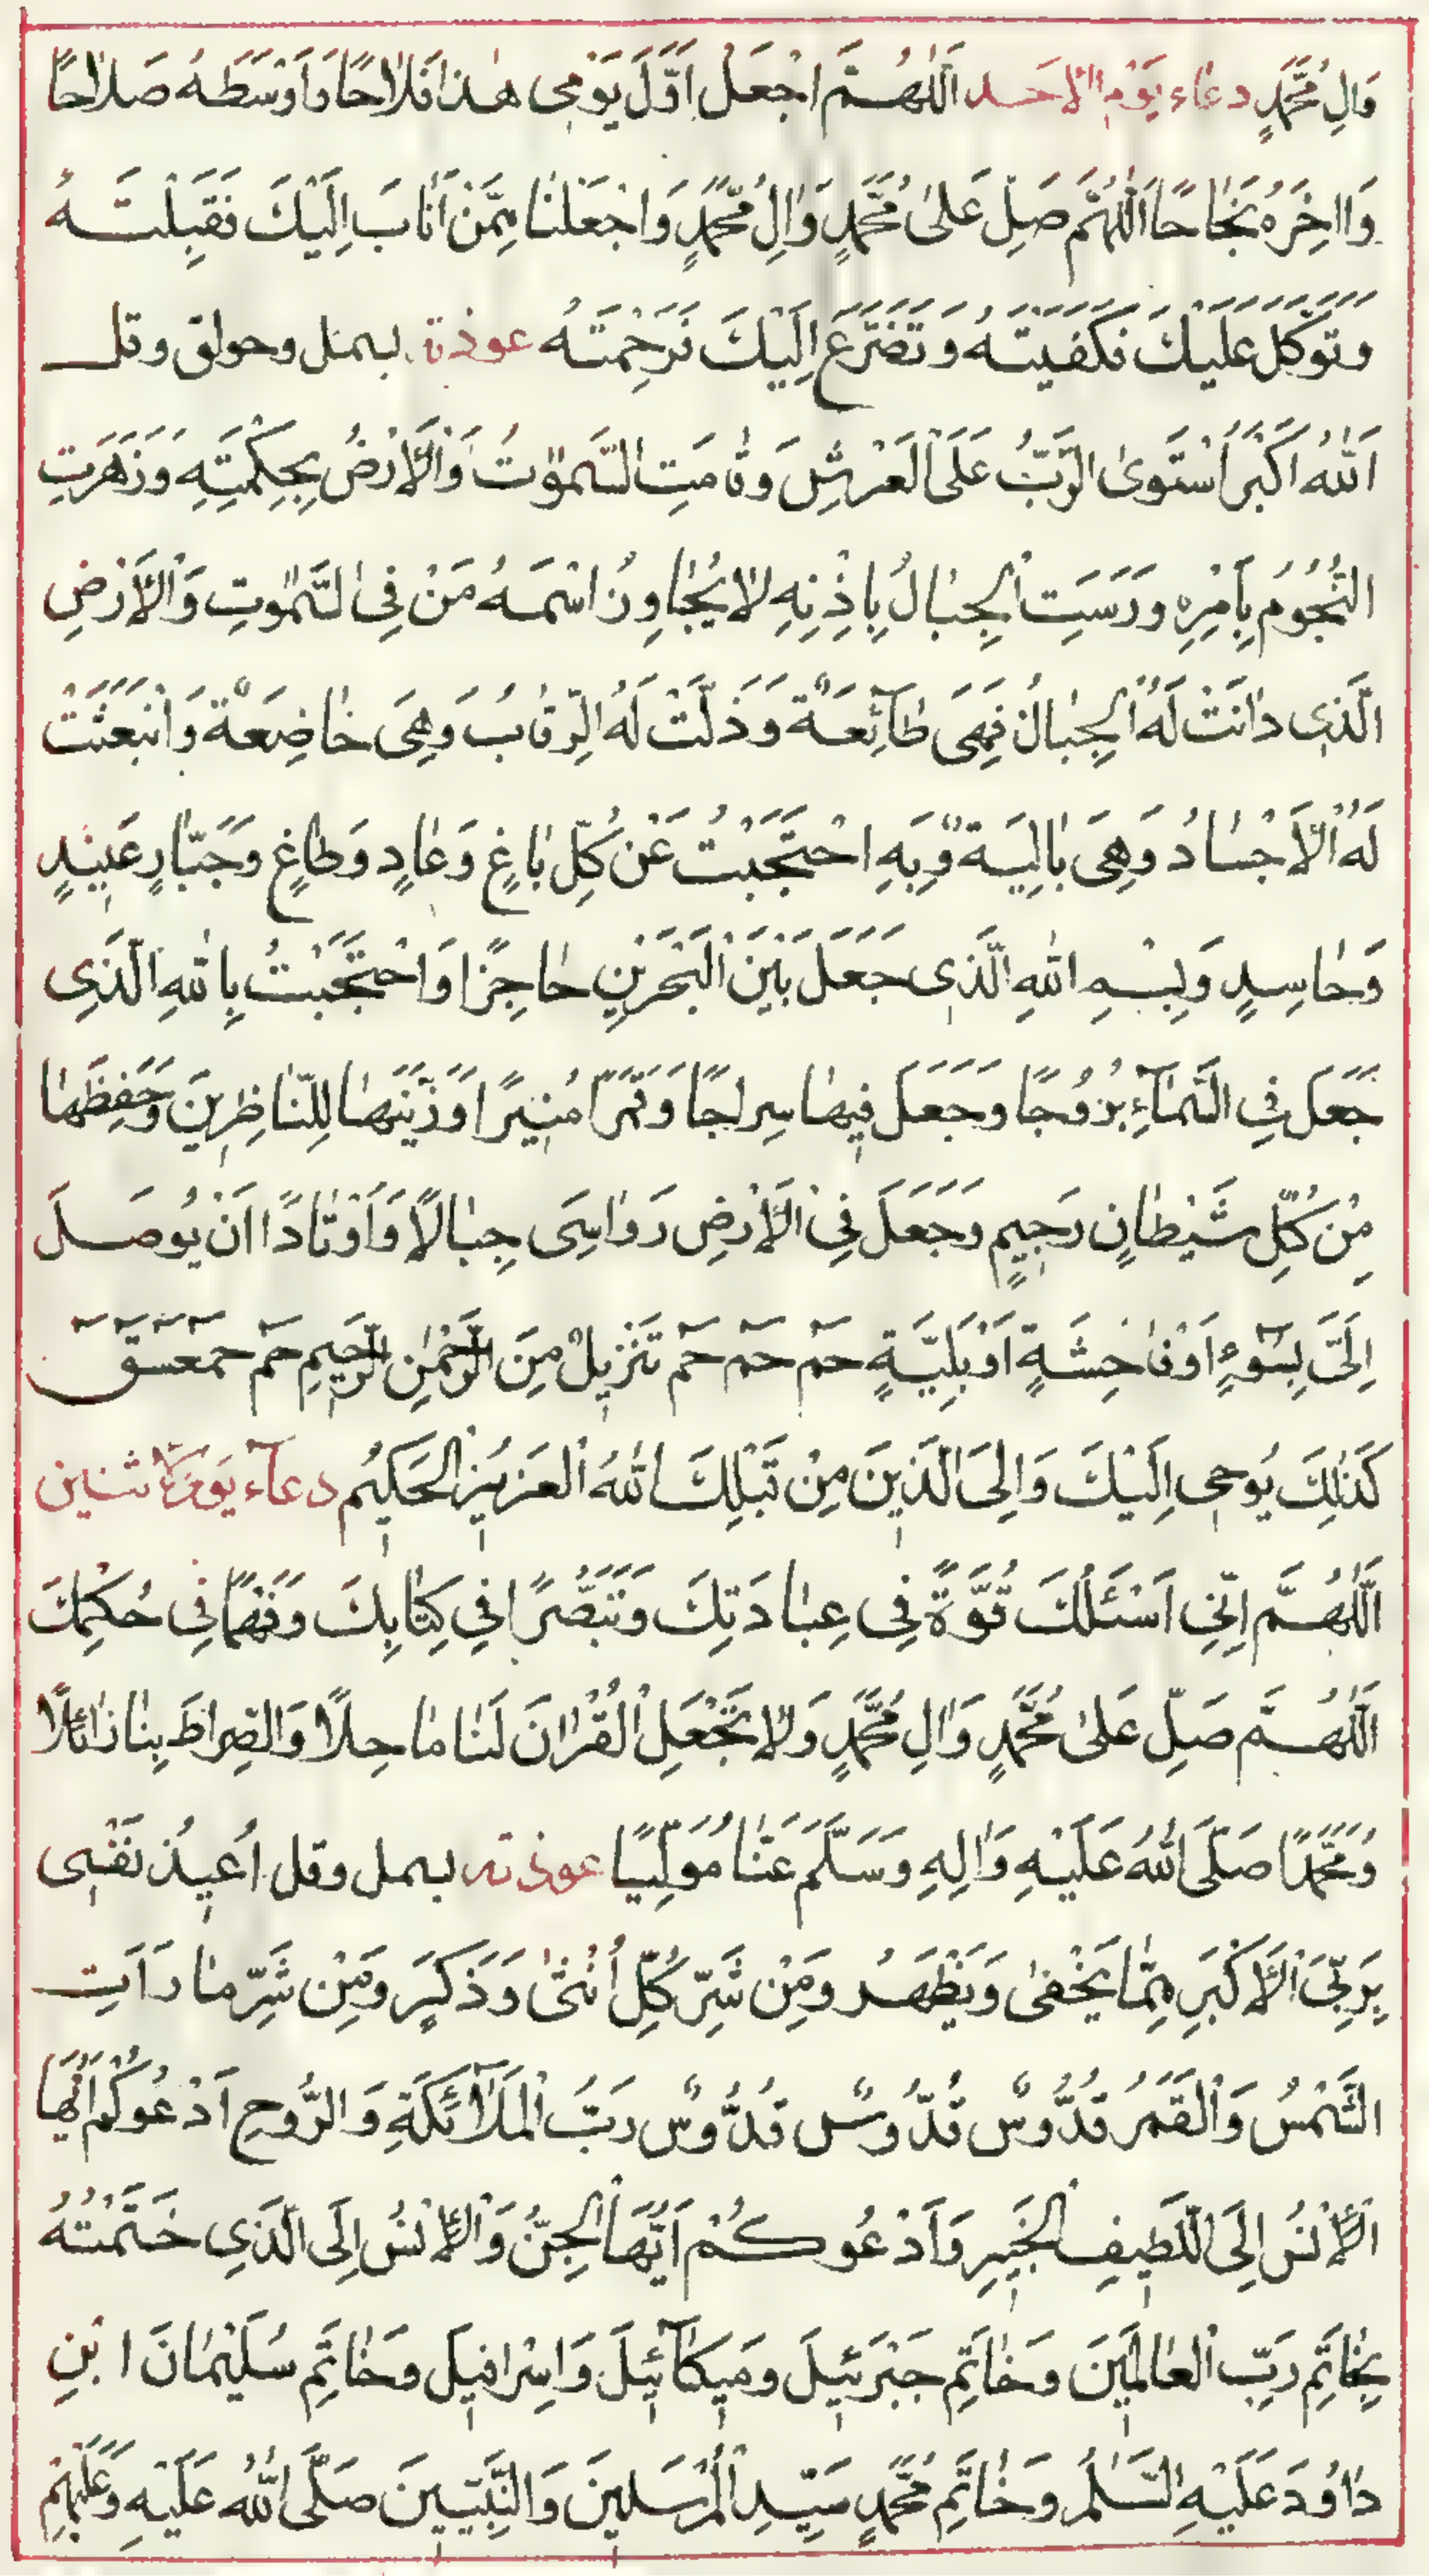 وَالِ مُحَمَّدٍ دعاء يَوْمِ الْاَحَد اَللّٰهُمَّ اجْعَلْ اَوَّلَ يَوْمى هٰذا فَلاٰحًا وَاَوْسَطَهُ صَلاٰحًا
وَااخِرَهُ نَجٰاحًا اَللّٰهُمَّ صَلِّ عَلىٰ مُحَمَّدٍ وَاٰلِ مُحَمَّدٍ وَاجْعَلْنٰا مِمَّنْ اَنٰابَ اِلَيْكَ فَقَبِلْتَهُ
وَتَوَكَّلَ عَلَيْكَ فَكَفَيْتَهُ وَتَضَرَّعَ اِلَيْكَ فَرَحِمْتَهُ عوذة بسمل وحولق وقل
اَللّٰهُ اَكْبَرُ اَسْتَوىٰ الرَّبُّ عَلَى الْعَرْشِ وَقٰامَتِ السَّمٰوٰتُ وَالْاَرْضُ بِحِكْمَتِهِ وَزَهَرَتِ
النُّجُومُ بِاَمْرِهِ وَرَسَتِ الْجِبٰالُ بِاِذْنِهِ لاٰ يُجٰاوِزُ اسْمَهُ مَنْ فِى السَّمٰوٰتِ وَالْاَرْضِ
الَّذِى دٰانَتْ لَهُ الْجِبٰالُ فَهِىَ طٰآئِعَةٌ وَذَلَّتْ لَهُ الرِّقٰابُ وَهِىَ خٰاضِعَةٌ وَانْبَعَثَتْ
لَهُ الْاَجْسٰادُ وَهِىَ بٰالِيَةٌ وَبِهِ احْتَجَبْتُ عَنْ كُلِّ بٰاغٍ وَعٰادٍ وَطٰاغٍ وَجَبّٰارٍ عَنِيدٍ
وَحٰاسِدٍ وَبِسْمِ اللّٰهِ الَّذِى جَعَلَ بَيْنَ الْبَحْرَيْنِ حٰاجِزًا وَاحْتَجَبْتُ بِاللّٰهِ الَّذِى
جَعَلَ فِى السَّمٰآءِ بُرُوجًا وَجَعَلَ فِيهٰا سِرٰاجًا وَقَمَرًا مُنِيرًا وَزَيَّنَهٰا لِلنّٰاظِرِينَ وَحَفِظَهٰا
مِنْ كُلِّ شَيْطٰانٍ رَجِيمٍ وَجَعَلَ فِى الْاَرْضِ رَوٰاسِىَ جِبٰالًا وَاَوْتٰادًا اَنْ يُوصَلَ
اِلَىَّ بِسُوٓءٍ اَوْ فٰاحِشَةٍ اَوْ بَلِيَّةٍ حٰمٓ حٰمٓ حٰمٓ تَنْزِيلٌ مِنَ الرَّحْمٰنِ الرَّحِيمِ حٰمٓ حٰمٓعٓسٓقٓ
كَذٰلِكَ يُوحى اِلَيْكَ وَاِلَى الَّذِينَ مِنْ قَبْلِكَ اللّٰهُ الْعَزِيزُ الْحَكِيُم دعآء يَوم الاثنين
اَللّٰهُمَّ اِنِّى اَسْئَلُكَ قُوَّةً فِى عِبٰادَتِكَ وَتَبَصُّرًا فِى كِتٰابِكَ وَفَهْمًا فِى حُكْمِكَ
اَللّٰهُمَّ صَلِّ عَلىٰ مُحَمَّدٍ وَاٰلِ مُحَمَّدٍ وَلاٰ تَجْعَلِ الْقُرْاٰنَ لَنٰا مٰاحِلًا وَالصِّرٰاطَ بِنٰا زٰائِلًا
وَمُحَمَّدًا صَلَّى اللّٰهُ عَلَيْهِ وَاٰلِهِ وَسَلَّمَ عَنّٰا مُوَلِّيًا عوذته بسمل وقل اُعِيذُ نَفْسِى
بِرَبِّىَ الْاَكْبَرِ مِمّٰا يَخْفىٰ وَيَظْهَرُ وَمِنْ شَرِّ كُلِّ اُنْثىٰ وَذَكَرٍ وَمِنْ شَرِّ مٰا رَاَتِ
الشَّمْسُ وَالْقَمَرُ قُدُّوسٌ قُدُّوسٌ قُدُّوسٌ رَبُّ الْمَلآٰئِكَةِ وَالرُّوحِ اَدْعُوكُمْ اَيُّهَا
الْاِنْسُ اِلَى اللَّطِيفِ الْخَبِيرِ وَاَدْعُوكُمْ اَيُّهَا الْجِنُّ وَالْاِنْسُ اِلَى الَّذِى خَتَمْتُهُ
بِخٰاتَمِ رَبِّ الْعٰالَمِينَ وَخٰاتَمِ جَبْرَئِيلَ وَمِيكٰآئِيلَ وَاِسْرٰافِيلَ وَخٰاتَمِ سُلَيْمٰانَ ابْنِ
دٰاوُدَ عَلَيْهِ السَّلٰمُ وَخٰاتَمِ مُحَمَّدٍ سَيِّدِ الْمُرْسَلِينَ وَالنَّبِيِّينَ صَلَّى اللّٰهُ عَلَيْهِ وَعَلَيْهِمْ